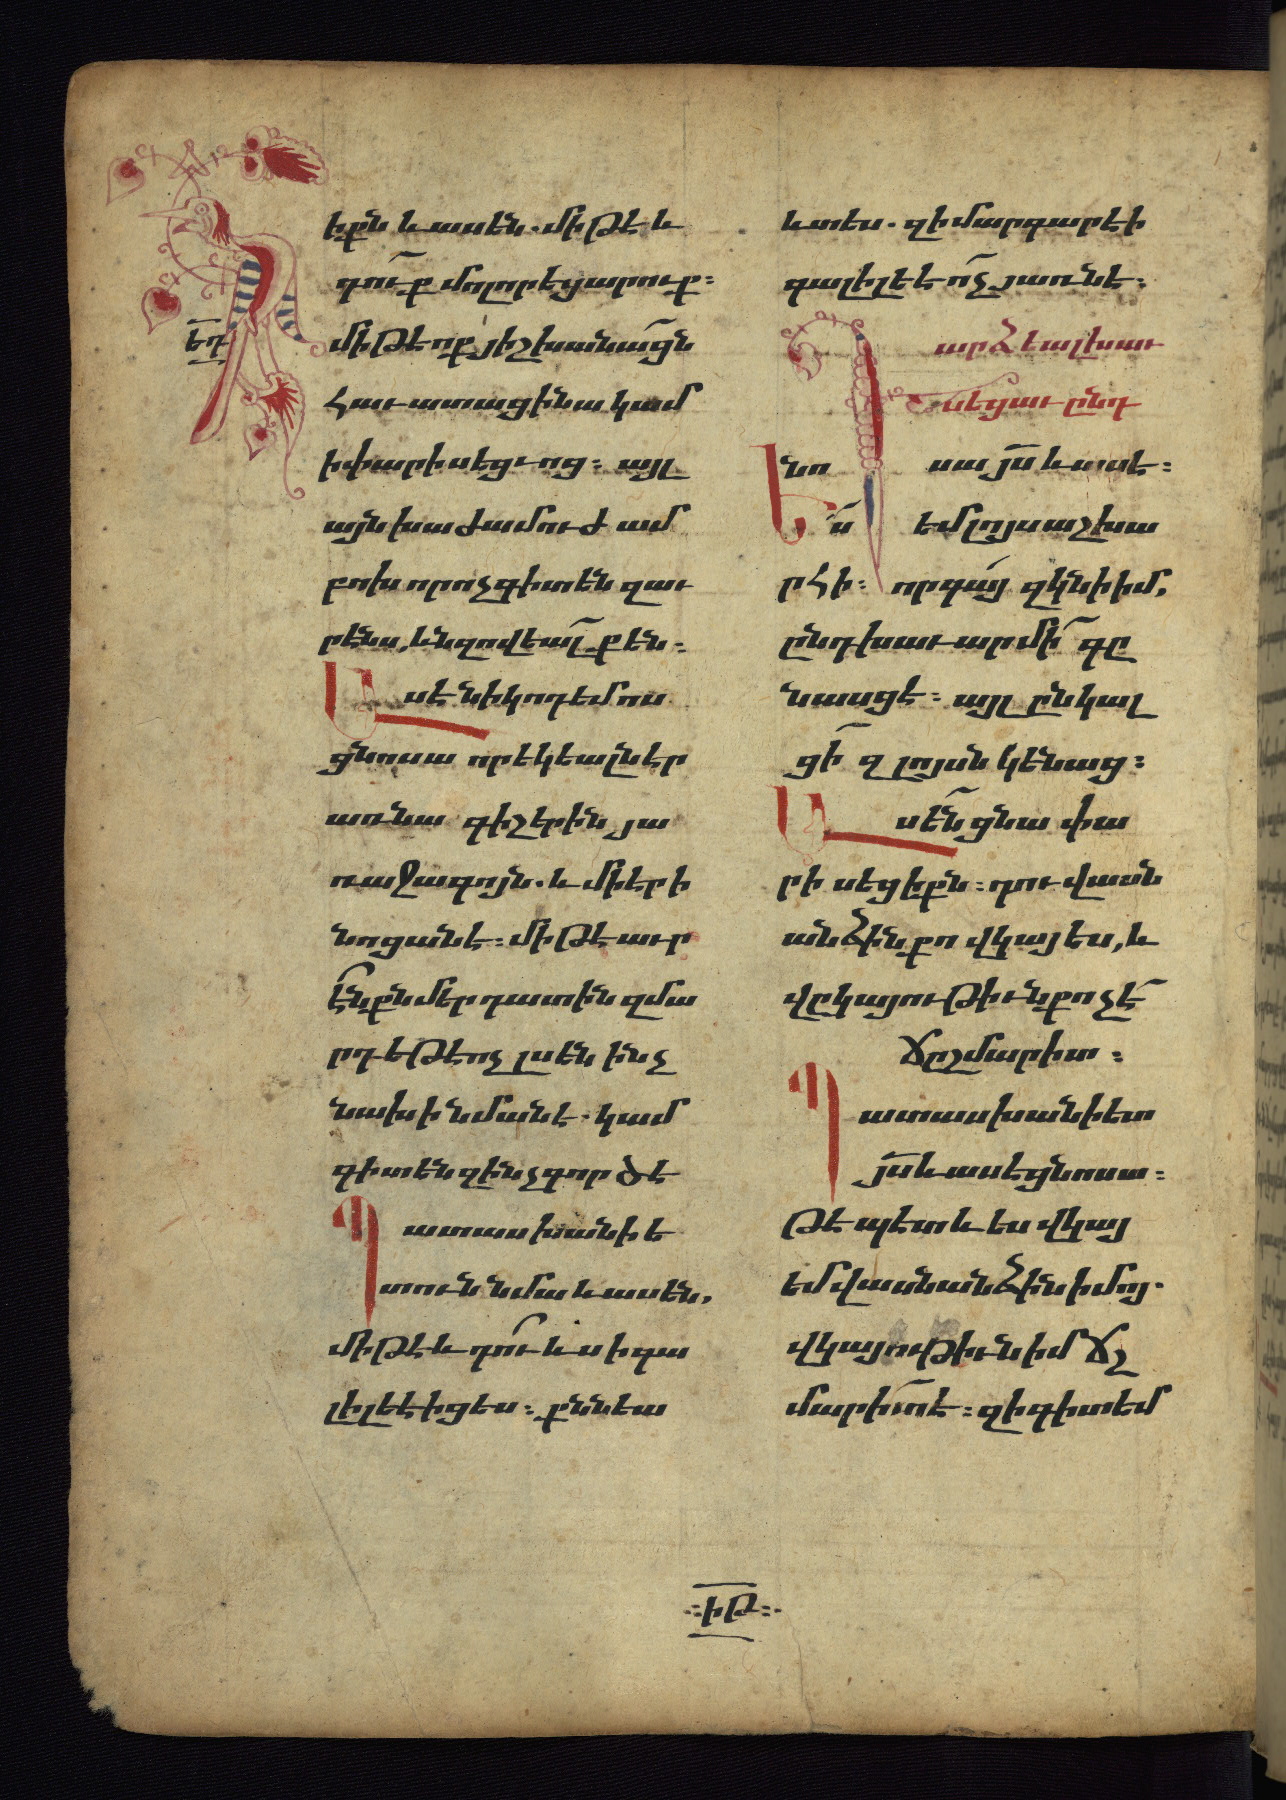 եղ
իքն և ասեն. միթէ և
դո՞ւք մոլորեցարուք։
միթէ ոք յիշխանացն
հաւատաց ինա կամ
ի փարիսեցւոց։ այլ
այն խաժամուժ ամ
բոխ որ ոչ գիտեն զաւ
րէնս, և նզովեալ քեն։
Ասէ նիկոդեմոս
ցնոսա որ եկեալ էր
առ նա գիշերին յա
ռաջագոյն. և մի էր ի
նոցանէ։ միթէ աւր
էնքն մեր դատին զմա
րդ եթէ ոչ լսեն ինչ
նախ ի նմանէ. կամ
գիտեն զինչ գործէ
Պատասխանի ե
տուն նմա և ասեն,
միթէ և դո՞ւ ևս ի գա
լիլեէ իցես։ քննեա
և տես. զի մարգարէ ի
գալիլեէ ոչ յառնէ։
Դարձեալ խաւ
սեցաւ ընդ
նոսա յս և ասէ։
Ես եմ լոյս աշխա
րհի։ որ գայ զկնի իմ,
ընդ խաւար մի գը
նասցէ։ այլ ընկալ
ցի զլոյսն կենաց։
Ասեն ցնա փա
րիսեցիքն։ դու վասն
անձին քո վկայես, և
վըկայութիւն քո չէ
ճըշմարիտ։
Պատասխանի ետ
յս և ասէ ցնոսա։
թէպէտ և ես վկայ
եմ վասն անձին իմոյ.
վկայութիւն իմ ճշ
մարիտ է։ զի գիտեմ
ԻԹ